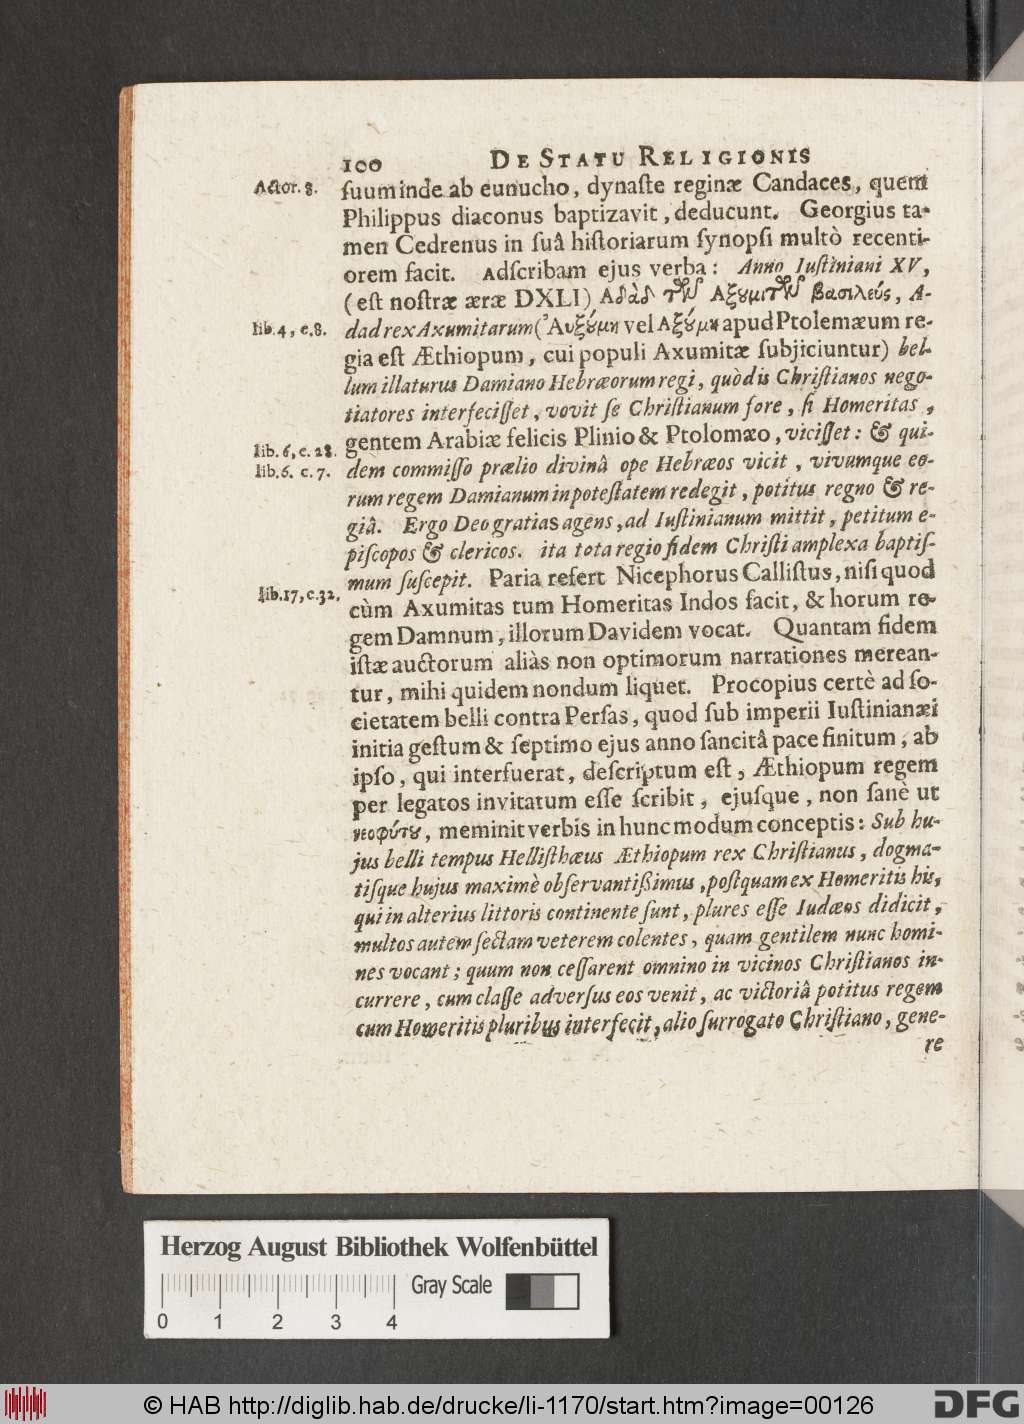 100 DE STATU RELIGIONIS
Actor. 8.
ſuum inde ab eunucho, dynaſte reginæ Candaces, quem
Philippus diaconus baptizavit, deducunt. Georgius ta-
men Cedrenus in ſuâ hiſtoriarum ſynopſi multò recenti-
orem facit. Adſcribam ejus verba: Anno Iuſtiniani XV,
(eſt noſtræ æræ DXLI) Αδὰδ τῶν Αξουμιτῶν βασιλεύς, A-
lib. 4, c. 8.
dad rex Axumitarum (Ἀυξούμη vel Αξούμη apud Ptolemæum re-
gia eſt Æthiopum, cui populi Axumitæ ſubjiciuntur) bel-
lum illaturus Damiano Hebræorum regi, quòd is Chriſtianos nego-
tiatores interfeciſſet, vovit ſe Chriſtianum fore, ſi Homeritas,
lib. 6, c. 28.
gentem Arabiæ felicis Plinio & Ptolomæo, viciſſet: & qui-
lib. 6. c. 7.
dem commiſſo prælio divinâ ope Hebræos vicit, vivumque eo-
rum regem Damianum in poteſtatem redegit, potitus regno & re-
giâ. Ergo Deo gratias agens, ad Iuſtinianum mittit, petitum e-
piſcopos & clericos. ita tota regio fidem Chriſti amplexa baptiſ-
mum ſuſcepit. Paria refert Nicephorus Calliſtus, niſi quod
lib. 17, c. 32.
cùm Axumitas tum Homeritas Indos facit, & horum re-
gem Damnum, illorum Davidem vocat. Quantam fidem
iſtæ auctorum aliàs non optimorum narrationes merean-
tur, mihi quidem nondum liquet. Procopius certè ad ſo-
cietatem belli contra Perſas, quod ſub imperii Iuſtinianæi
initia geſtum & ſeptimo ejus anno ſancitâ pace finitum, ab
ipſo, qui interfuerat, deſcriptum eſt, Æthiopum regem
per legatos invitatum eſſe ſcribit, ejuſque, non ſanè ut
νεοφύτου, meminit verbis in hunc modum conceptis: Sub hu-
jus belli tempus Helliſthæus Æthiopum rex Chriſtianus, dogma-
tiſque hujus maximè obſervantißimus, poſtquam ex Homeritis his,
qui in alterius littoris continente ſunt, plures eſſe Iudæos didicit,
multos autem ſectam veterem colentes, quam gentilem nunc homi-
nes vocant; quum non ceſſarent omnino in vicinos Chriſtianos in-
currere, cum claſſe adverſus eos venit, ac victoriâ potitus regem
cum Homeritis pluribus interfecit, alio ſurrogato Chriſtiano, gene-
re
Herzog August Bibliothek Wolfenbüttel
Gray Scale
0 1 2 3 4
© HAB http://diglib.hab.de/drucke/li-1170/start.htm?image=00126
DFG